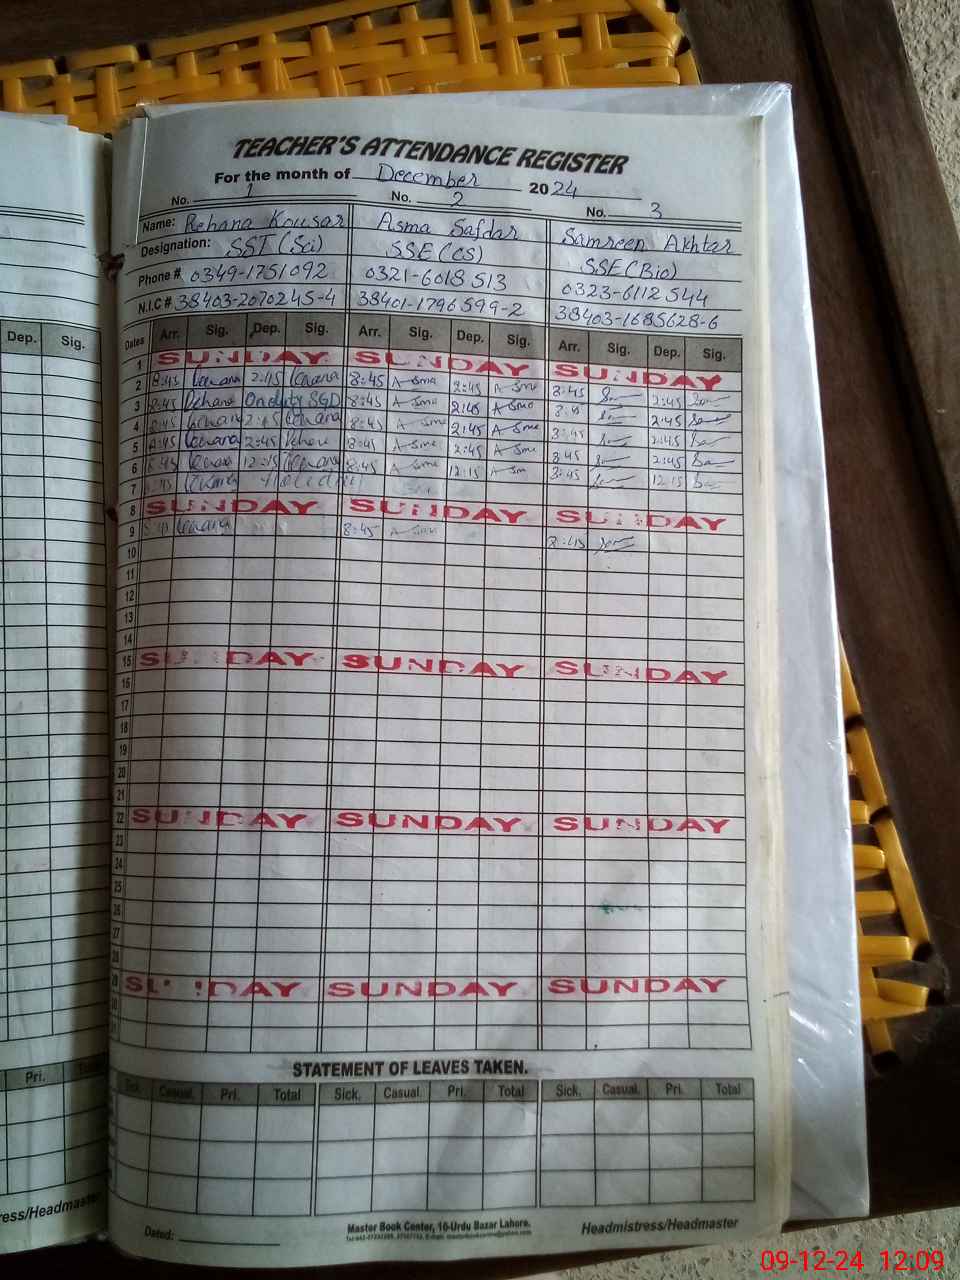 TEACHER'S ATTENDANCE REGISTER
For the month of December 2024
No. 1 No. 2 No. 3
Name: Rehana Kousar Asma Safdar Samreen Akhtar
Designation: SST (Sci) SSE (CS) SSE (Bio)
Phone # 0349-1751092 0321-6018513 0323-6112544
N.I.C # 38403-2070245-4 38401-1796599-2 38403-1685628-6
Dep. Sig. Dates Arr. Sig. Dep. Sig. Arr. Sig. Dep. Sig. Arr. Sig. Dep. Sig.
1 SUNDAY SUNDAY SUNDAY
2 8:45 2:45 8:45 Asma 2:45 Asma 8:45 2:45
3 8:45 Rehana On duty SGD 8:45 Asma 2:45 Asma 8:45 2:45
4 8:45 2:45 8:45 Asma 2:45 Asma 8:45 2:45
5 8:45 2:45 8:45 Asma 2:45 Asma 8:45 2:45
6 8:45 12:15 8:45 Asma 12:15 Asma 8:45 12:15
7 8:45 Holiday
8 SUNDAY SUNDAY SUNDAY
9 8:45 8:45 Asma 8:45
10
11
12
13
14
15 SUNDAY SUNDAY SUNDAY
16
17
18
19
20
21
22 SUNDAY SUNDAY SUNDAY
23
24
25
26
27
28
29 SUNDAY SUNDAY SUNDAY
STATEMENT OF LEAVES TAKEN.
Pri. Sick. Casual. Pri. Total Sick. Casual. Pri. Total Sick. Casual. Pri. Total
ess/Headmaster Dated: Master Book Center, 16-Urdu Bazar Lahore. Headmistress/Headmaster
09-12-24 12:09